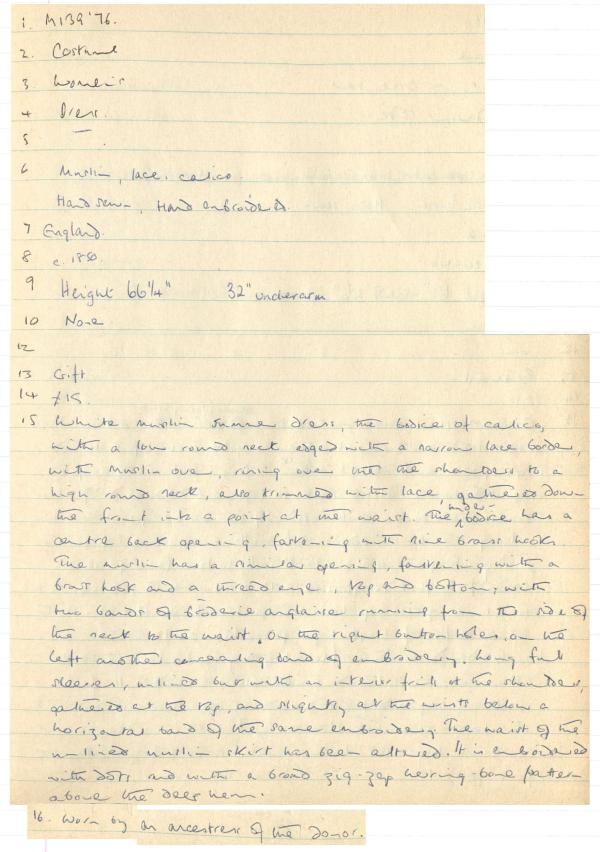 1. M139 '76.
2. Costume
3 Women's
4 Dress.
5
6 Muslin, lace, calico.
Hand sewn, Hand embroidered.
7 England.
8 c. 1850.
9 Height 66¼" 32" underarm
10 None
12
13 Gift
14 £15.
15 White muslin summer dress, the bodice of calico,
with a low round neck edged with a narrow lace border,
with muslin over, rising over the the shoulders to a
high round neck, also trimmed with lace, gathered down
the front into a point at the waist. The under-bodice has a
centre back opening, fastening with nine brass hooks.
The muslin has a similar opening, fastening with a
brass hook and a thread eye, top and bottom, with
two bands of broderie anglaise running from the side of
the neck to the waist. On the right button holes, on the
left another concealing band of embroidery. Long full
sleeves, unlined but with an interior frill at the shoulders,
gathered at the top, and slightly at the wrists below a
horizontal band of the same embroidery. The waist of the
unlined muslin skirt has been altered. It is embroidered
with dots and with a broad zig-zag herring-bone pattern
above the deep hem.
16. Worn by an ancestress of the donor.